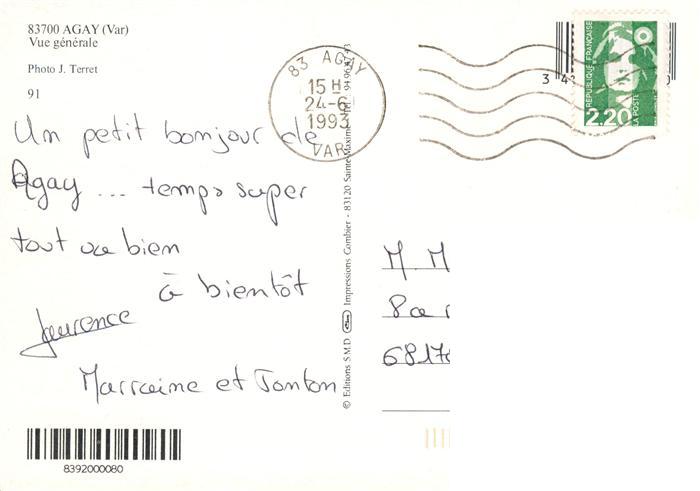 83700 AGAY (Var)
Vue générale
Photo J. Terret
91
Un petit bonjour de
Agay ... temps super
tout va bien
à bientôt
Laurence
Marraine et Tonton
8392000080
83 AGAY
15 H
24-6
1993
VAR
© Editions S.M.D. Impressions Combier - 83120 Sainte-Maxime - Tél. 94.96
RÉPUBLIQUE FRANÇAISE
2,20
LA POSTE
3
0
M. M
8 a r
6817